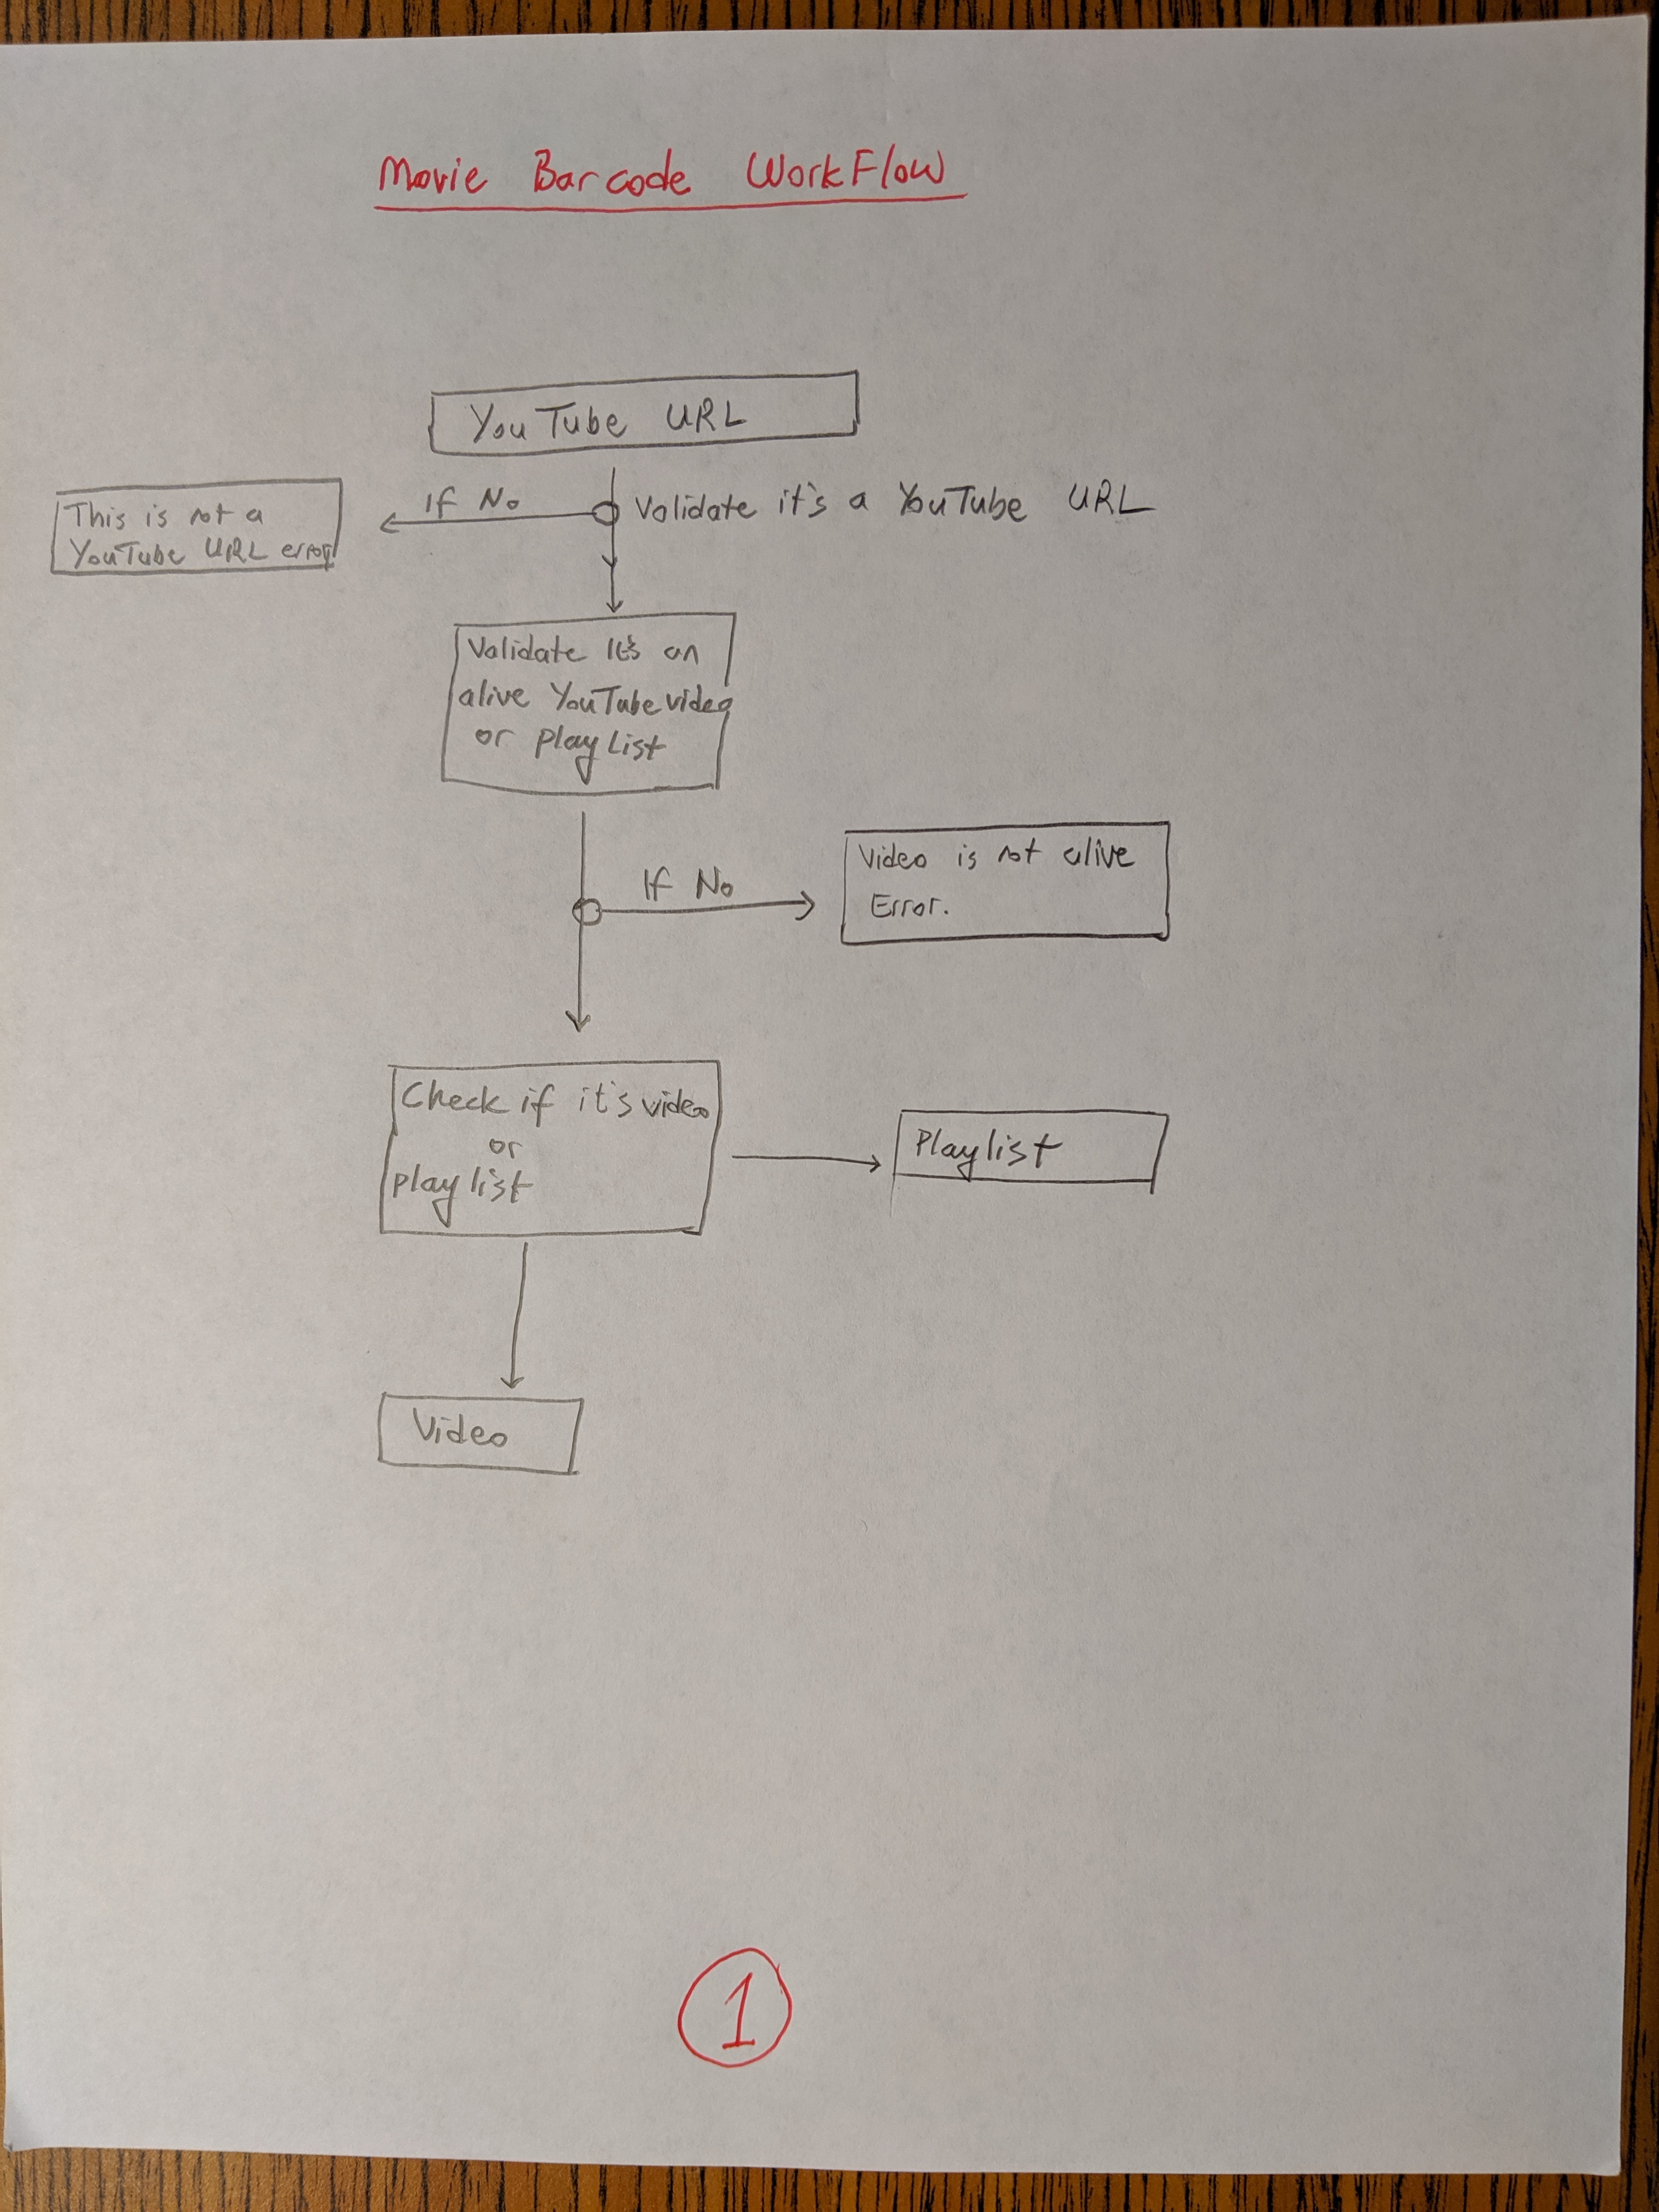 Movie Barcode WorkFlow
YouTube URL
If No
Validate it's a YouTube URL
This is not a
YouTube URL error
Validate It's an
alive YouTube video
or playList
If No
Video is not alive
Error.
Check if it's video
or
playlist
Playlist
Video
1